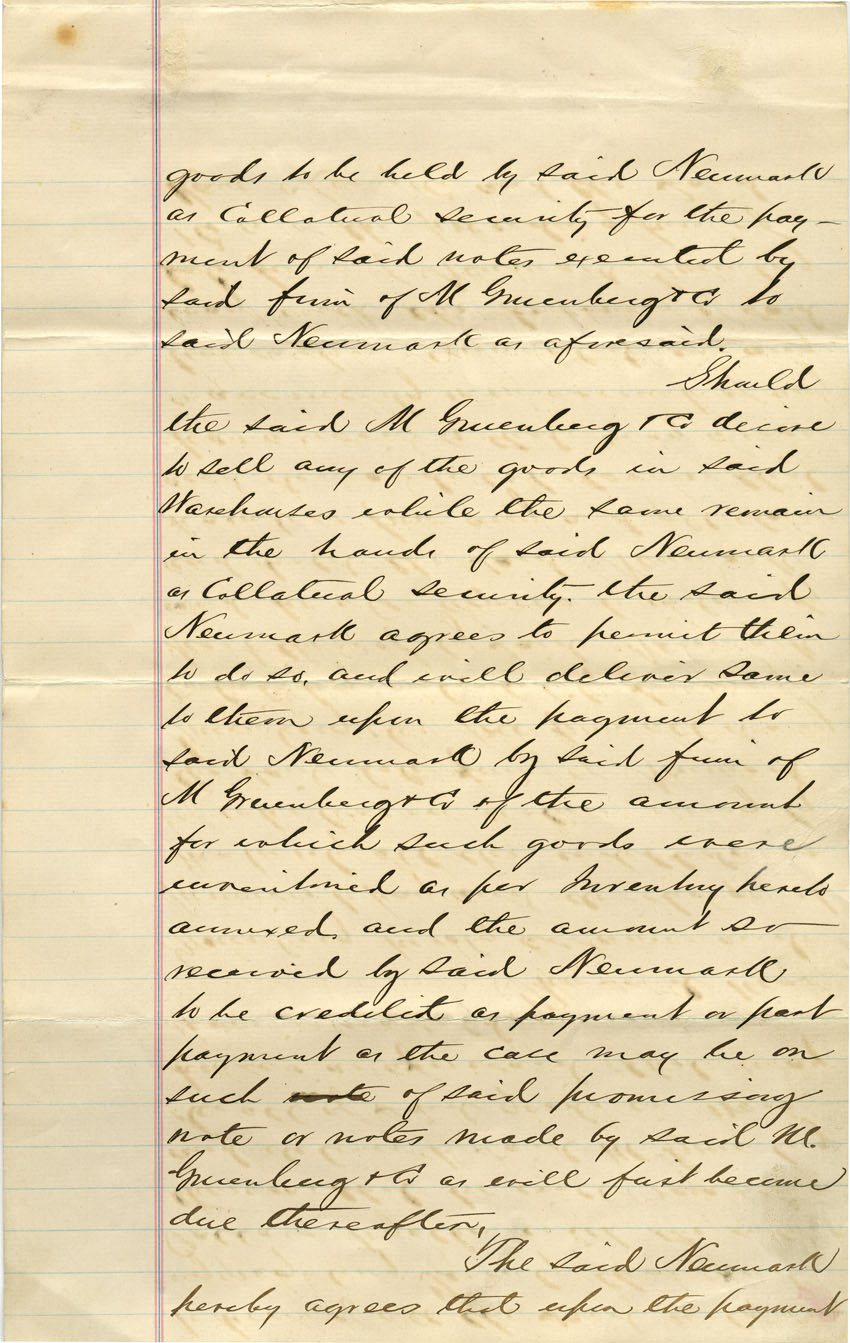 goods to be held by said Neumark
as Collatural security for the pay-
ment of said notes executed by
said firm of M Gruenberg & Co to
said Neumark as aforesaid.
Should
the said M Gruenberg & Co desire
to sell any of the goods in said
Warehouses while the same remain
in the hands of said Neumark
as Collatural security. the said
Neumark agrees to permit them
to do so, and will deliver same
to them upon the payment to
said Neumark by said firm of
M Gruenberg & Co of the amount
for which such goods were
inventoried as per Inventory hereto
annexed, and the amount so
received by said Neumark
to be credited as payment or part
payment as the case may be on
such note of said promissory
note or notes made by said M.
Gruenberg & Co as will first become
due thereafter,
The said Neumark
hereby agrees that upon the payment